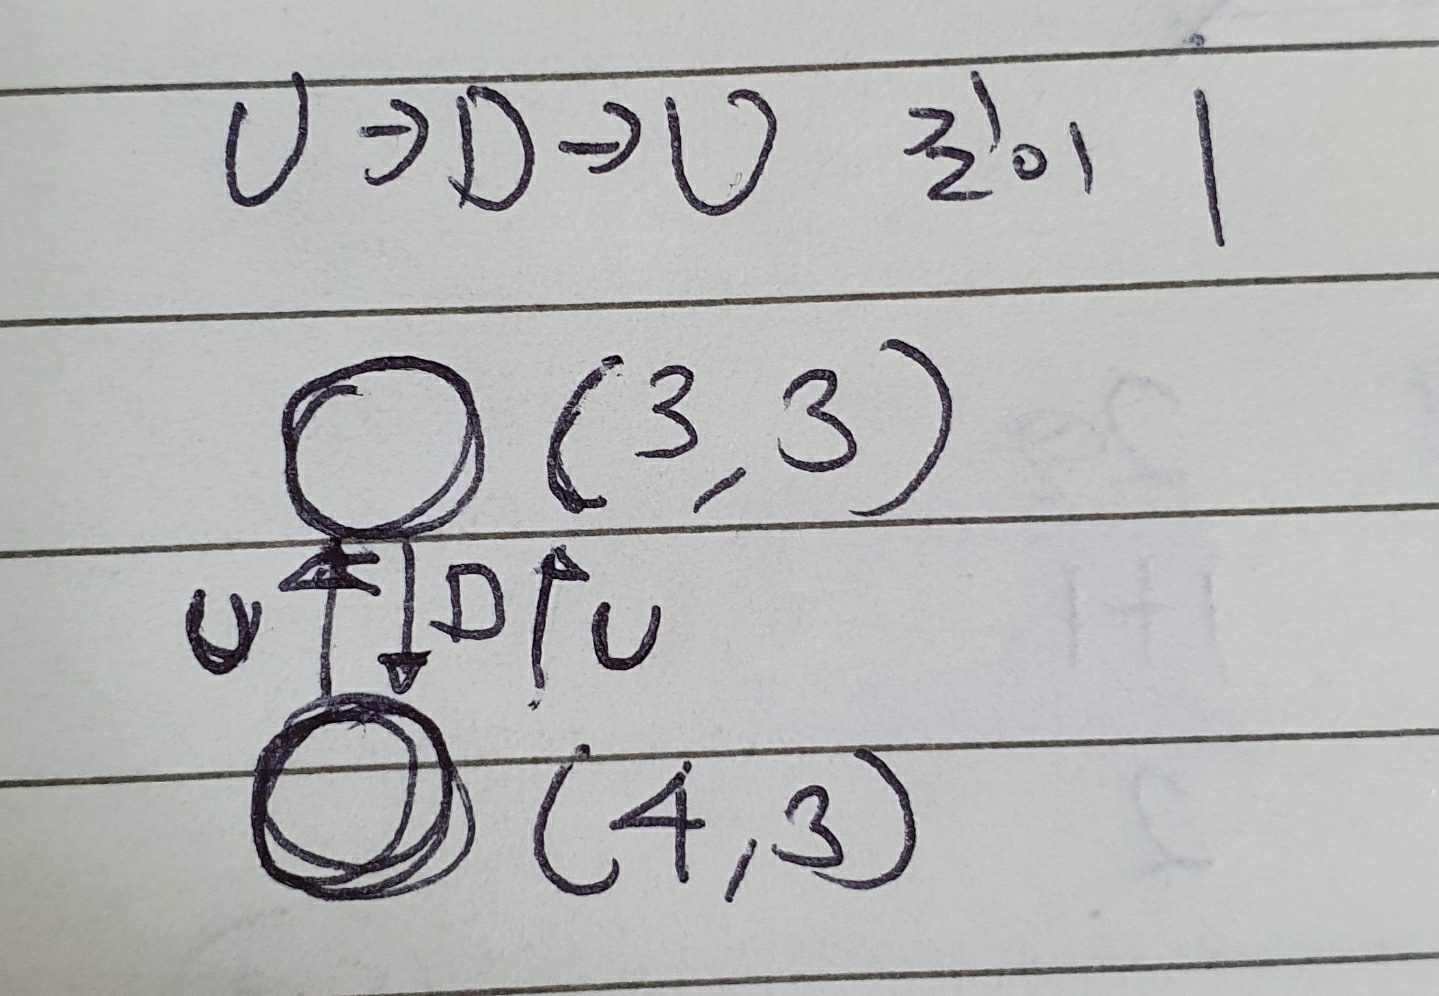 U→D→U 길이 1
(3,3)
U D U
(4,3)